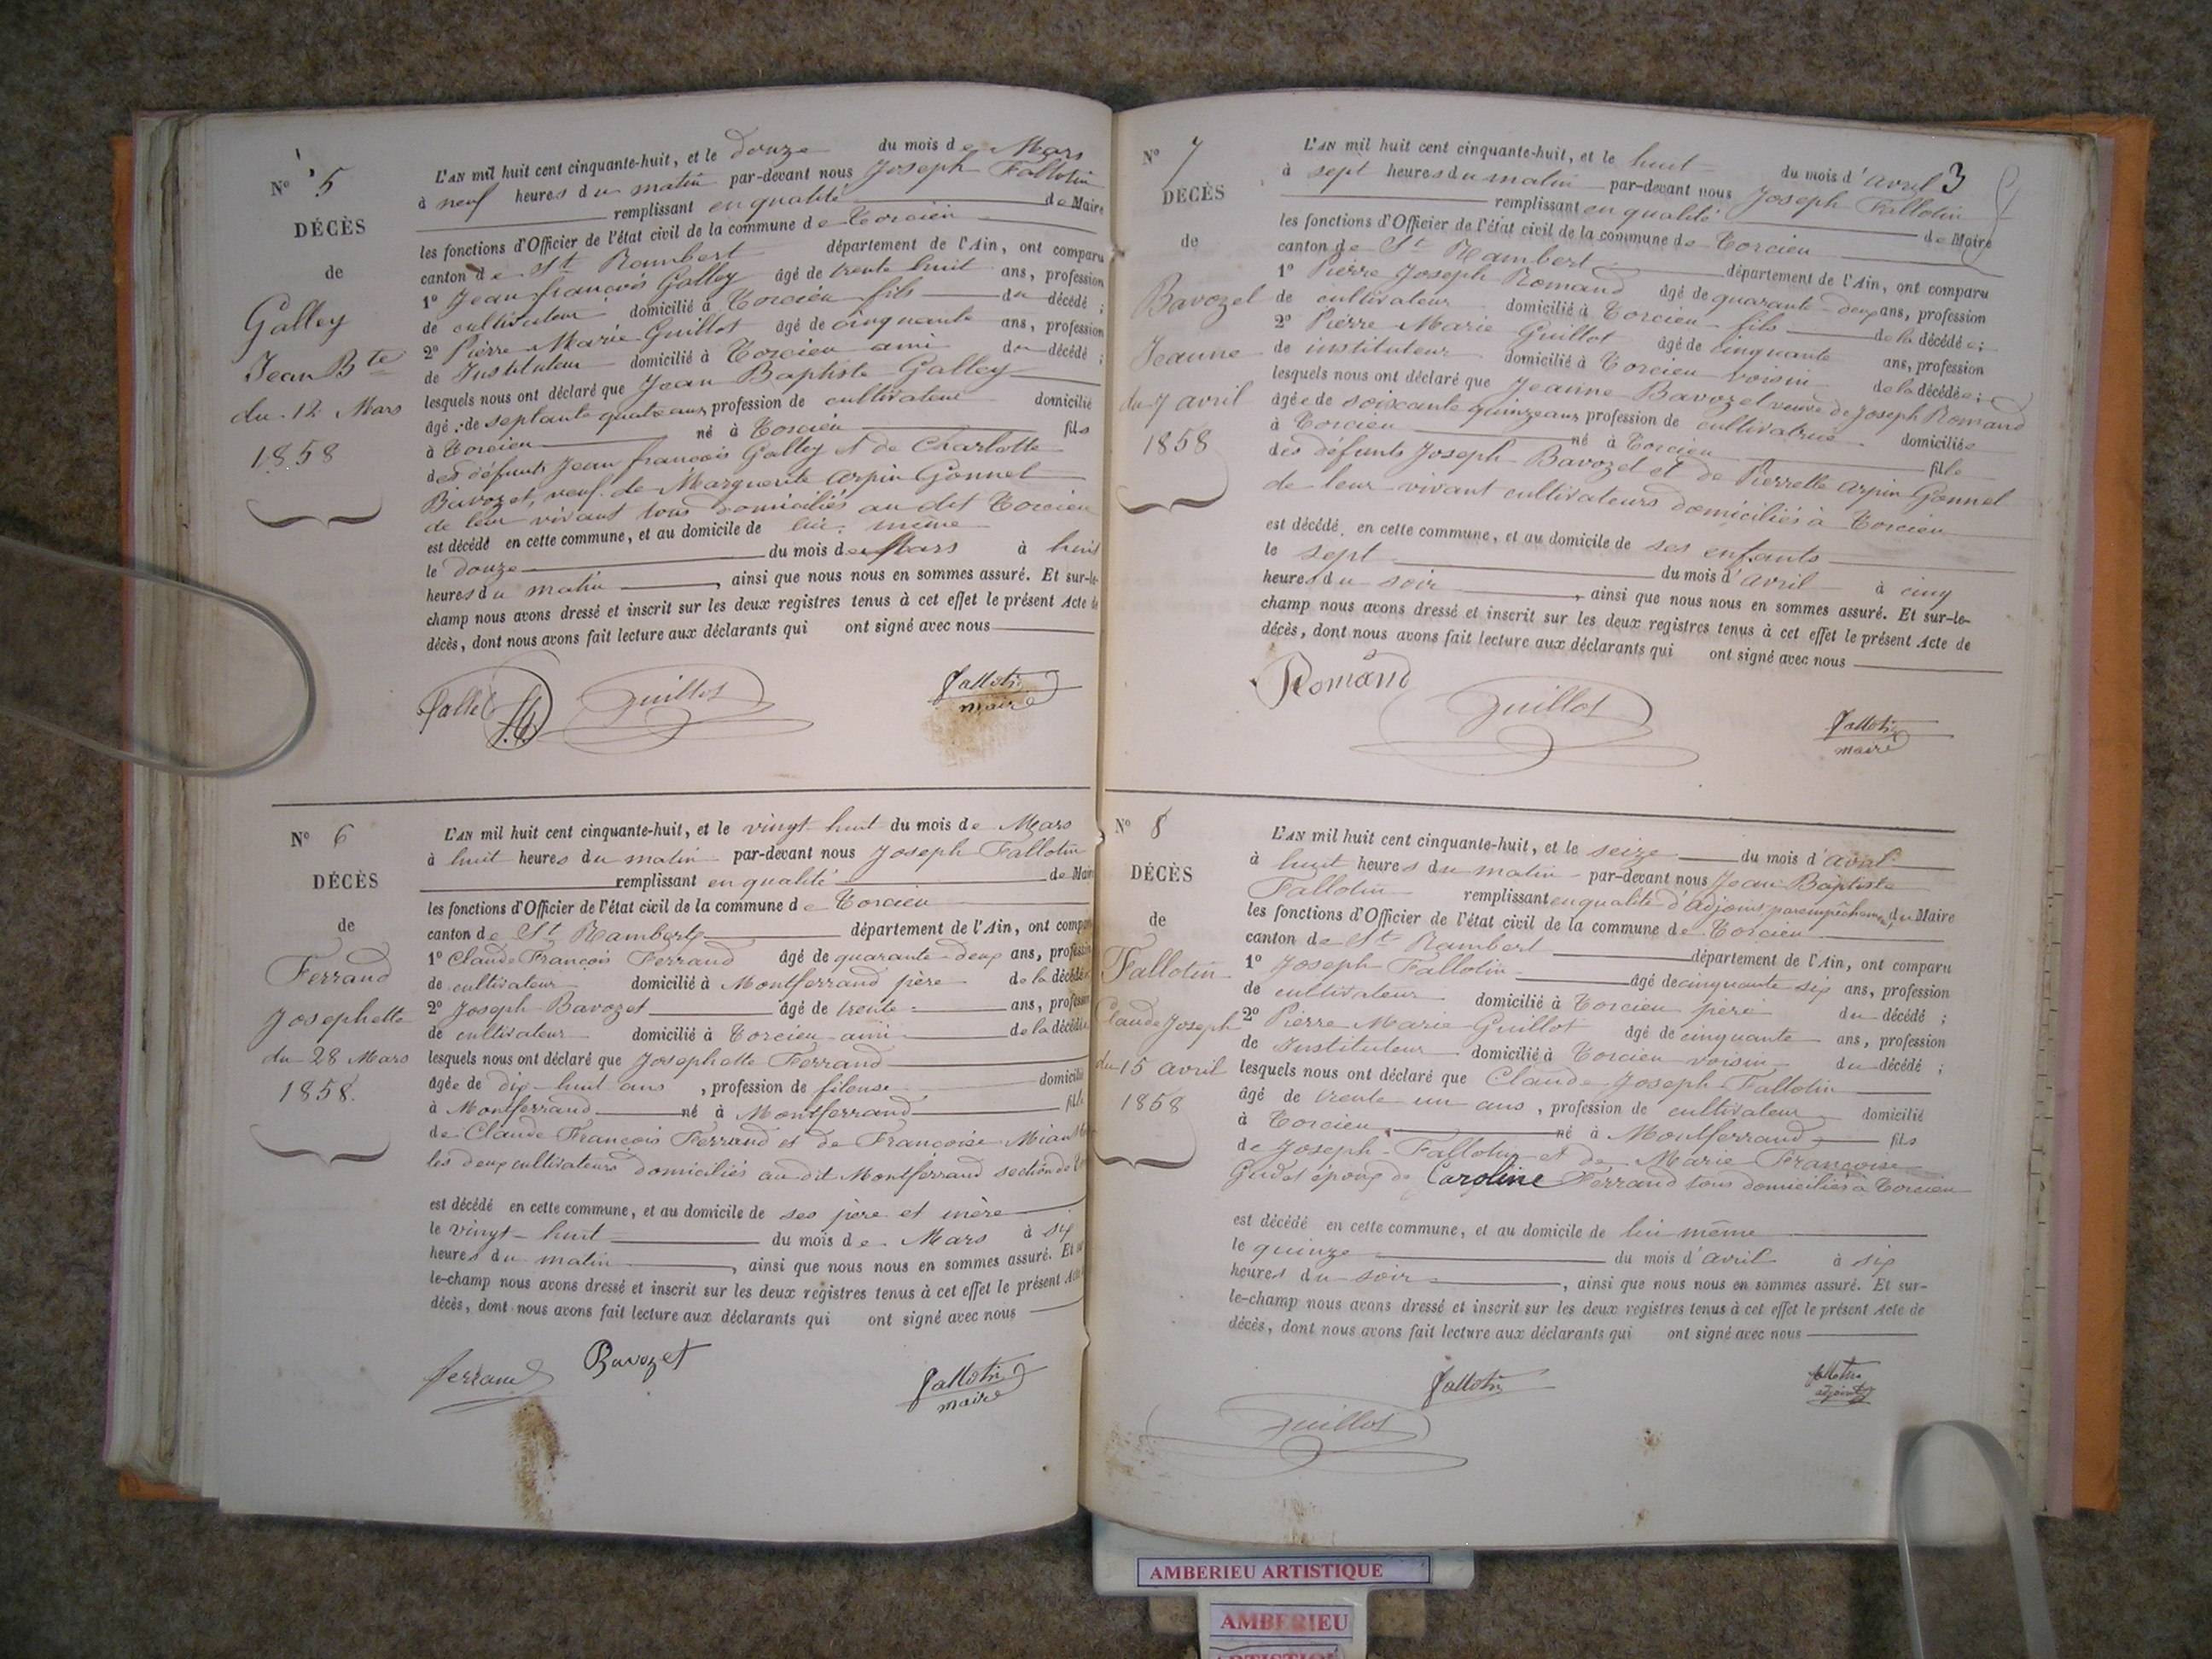 N° 5
DÉCÈS
de
Galley
Jean Bte
du 12 Mars
1858
L'AN mil huit cent cinquante-huit, et le douze du mois de Mars
à neuf heures du matin par-devant nous Joseph Fallotin
remplissant en qualité de Maire
les fonctions d'Officier de l'état civil de la commune de Torcieu
canton de St Rambert département de l'Ain, ont comparu
1° Jean françois Galley âgé de trente huit ans, profession
de cultivateur domicilié à Torcieu fils du décédé ;
2° Pierre Marie Guillot âgé de cinquante ans, profession
de Instituteur domicilié à Torcieu ami du décédé ;
lesquels nous ont déclaré que Jean Baptiste Galley
âgé de septante quatre ans, profession de cultivateur domicilié
à Torcieu né à Torcieu fils
des défunts Jean françois Galley et de Charlotte
Bavozet, veuf de Marguerite Arpin Gonnet
de leur vivant tous domiciliés au dit Torcieu
est décédé en cette commune, et au domicile de lui même
le douze du mois de Mars à huit
heures du matin, ainsi que nous nous en sommes assuré. Et sur-le-
champ nous avons dressé et inscrit sur les deux registres tenus à cet effet le présent Acte de
décès, dont nous avons fait lecture aux déclarants qui ont signé avec nous
Guillot
Fallotin
maire
N° 6
DÉCÈS
de
Ferrand
Josephette
du 28 Mars
1858.
L'AN mil huit cent cinquante-huit, et le vingt huit du mois de Mars
à huit heures du matin par-devant nous Joseph Fallotin
remplissant en qualité de Maire
les fonctions d'Officier de l'état civil de la commune de Torcieu
canton de St Rambert département de l'Ain, ont comparu
1° Claude François Ferrand âgé de quarante deux ans, profession
de cultivateur domicilié à Montferrand père de la décédée
2° Joseph Bavozet âgé de trente ans, profession
de cultivateur domicilié à Torcieu ami de la décédée
lesquels nous ont déclaré que Josephette Ferrand
âgée de dix-huit ans, profession de fileuse domicilié
à Montferrand né à Montferrand fille
de Claude François Ferrand et de Françoise
les deux cultivateurs domiciliés au dit Montferrand section de
est décédé en cette commune, et au domicile de ses père et mère
le vingt-huit du mois de Mars à six
heures du matin, ainsi que nous nous en sommes assuré. Et sur-
le-champ nous avons dressé et inscrit sur les deux registres tenus à cet effet le présent Acte
décès, dont nous avons fait lecture aux déclarants qui ont signé avec nous
ferrand Bavozet
Fallotin
maire
3
N° 7
DÉCÈS
de
Bavozet
Jeanne
du 7 avril
1858
L'AN mil huit cent cinquante-huit, et le huit du mois d'avril
à sept heures du matin par-devant nous Joseph Fallotin
remplissant en qualité de Maire
les fonctions d'Officier de l'état civil de la commune de Torcieu
canton de St Rambert département de l'Ain, ont comparu
1° Pierre Joseph Romand âgé de quarante-deux ans, profession
de cultivateur domicilié à Torcieu fils de la décédée ;
2° Pierre Marie Guillot âgé de cinquante ans, profession
de instituteur domicilié à Torcieu voisin de la décédée ;
lesquels nous ont déclaré que Jeanne Bavozet veuve de Joseph Romand
âgée de soixante quinze ans, profession de cultivatrice domiciliée
à Torcieu né à Torcieu fille
des défunts Joseph Bavozet et de Pierrette Arpin Gonnet
de leur vivant cultivateurs domiciliés à Torcieu
est décédé en cette commune, et au domicile de ses enfants
le sept du mois d'avril à cinq
heures du soir, ainsi que nous nous en sommes assuré. Et sur-le-
champ nous avons dressé et inscrit sur les deux registres tenus à cet effet le présent Acte de
décès, dont nous avons fait lecture aux déclarants qui ont signé avec nous
Romand
Guillot
Fallotin
maire
N° 8
DÉCÈS
de
Fallotin
Claude Joseph
du 15 avril
1858
L'AN mil huit cent cinquante-huit, et le seize du mois d'avril
à huit heures du matin par-devant nous Jean Baptiste
Fallotin remplissant en qualité d'adjoint par empêchement du Maire
les fonctions d'Officier de l'état civil de la commune de Torcieu
canton de St Rambert département de l'Ain, ont comparu
1° Joseph Fallotin âgé de cinquante six ans, profession
de cultivateur domicilié à Torcieu père du décédé ;
2° Pierre Marie Guillot âgé de cinquante ans, profession
de Instituteur domicilié à Torcieu voisin du décédé ;
lesquels nous ont déclaré que Claude Joseph Fallotin
âgé de trente un ans, profession de cultivateur domicilié
à Torcieu né à Montferrand fils
de Joseph Fallotin et de Marie Françoise
époux de Caroline Ferrand tous domiciliés à Torcieu
est décédé en cette commune, et au domicile de lui même
le quinze du mois d'avril à six
heures du soir, ainsi que nous nous en sommes assuré. Et sur-
le-champ nous avons dressé et inscrit sur les deux registres tenus à cet effet le présent Acte de
décès, dont nous avons fait lecture aux déclarants qui ont signé avec nous
Fallotin
adjoint
Guillot
AMBERIEU ARTISTIQUE
AMBERIEU
ARTISTIQUE